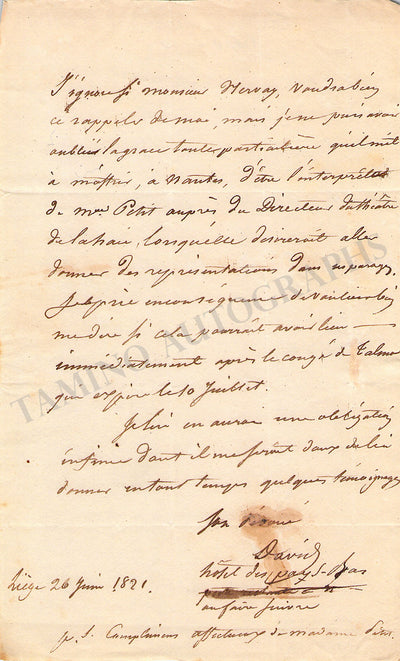 J'ignore si monsieur Nervay, voudra bien
ce rappeler de moi, mais je ne puis avoir
oublié la grace toute particulière qu'il mit
à m'offrir, à Nantes, d'être l'interprête
de Mme Petit auprès du Directeur du théâtre
de la haie, lorsqu'elle desirerait aller
donner des représentations dans
Je le prie en conséquence de vouloir bien
me dire si cela pourrait avoir lieu
immédiatement après le congé de Talma
que expire le 10 Juillet.
Je lui en aurai une obligation
infinie dont il me serait doux de lui
donner en tout temps quelques témoignages
son dévoué
David
hôtel des pays-Bas
ou faire suivre
Liège 26 Juin 1821.
p. S. Complimens affectueux de madame
TAMINO AUTOGRAPHS